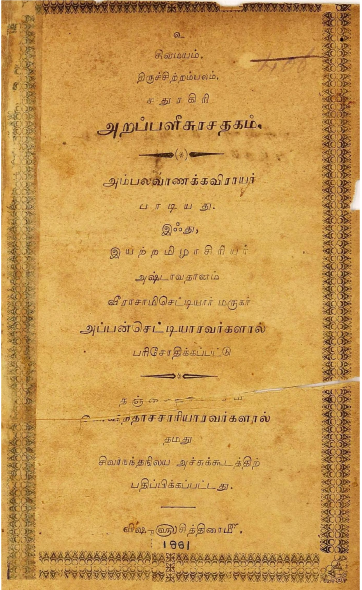 உ
சிவமயம்.
திருச்சிற்றம்பலம்.
சதுரகிரி
அறப்பளீசுரசதகம்.
அம்பலவாணக்கவிராயர்
பாடியது.
இஃது,
இயற்றமிழாசிரியர்
அஷ்டாவதானம்
வீராசாமிசெட்டியார் மருகர்
அப்பன்செட்டியாரவர்களால்
பரிசோதிக்கப்பட்டு
தாசசாரியாரவர்களால்
தமது
சிவாநந்தநிலய அச்சுக்கூடத்திற்
பதிப்பிக்கப்பட்டது.
விஷு சித்திரைமீ.
1881